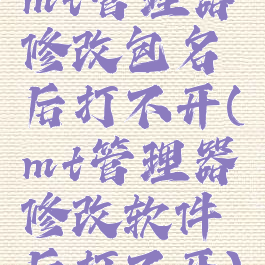 mt管理器
修改包名
后打不开(
mt管理器
修改软件
后打不开)